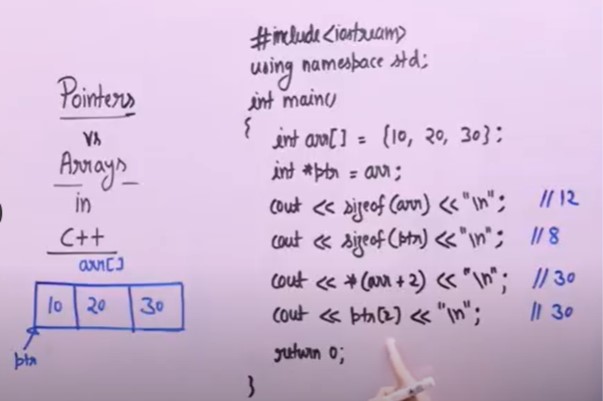 Pointers
vs
Arrays
in
C++
arr[]
10 20 30
ptr
#include<iostream>
using namespace std;
int main()
{
int arr[] = {10, 20, 30};
int *ptr = arr;
cout << sizeof(arr) <<"\n"; //12
cout << sizeof(ptr) <<"\n"; //8
cout << *(arr+2) <<"\n"; //30
cout << ptr[2] << "\n"; // 30
return 0;
}